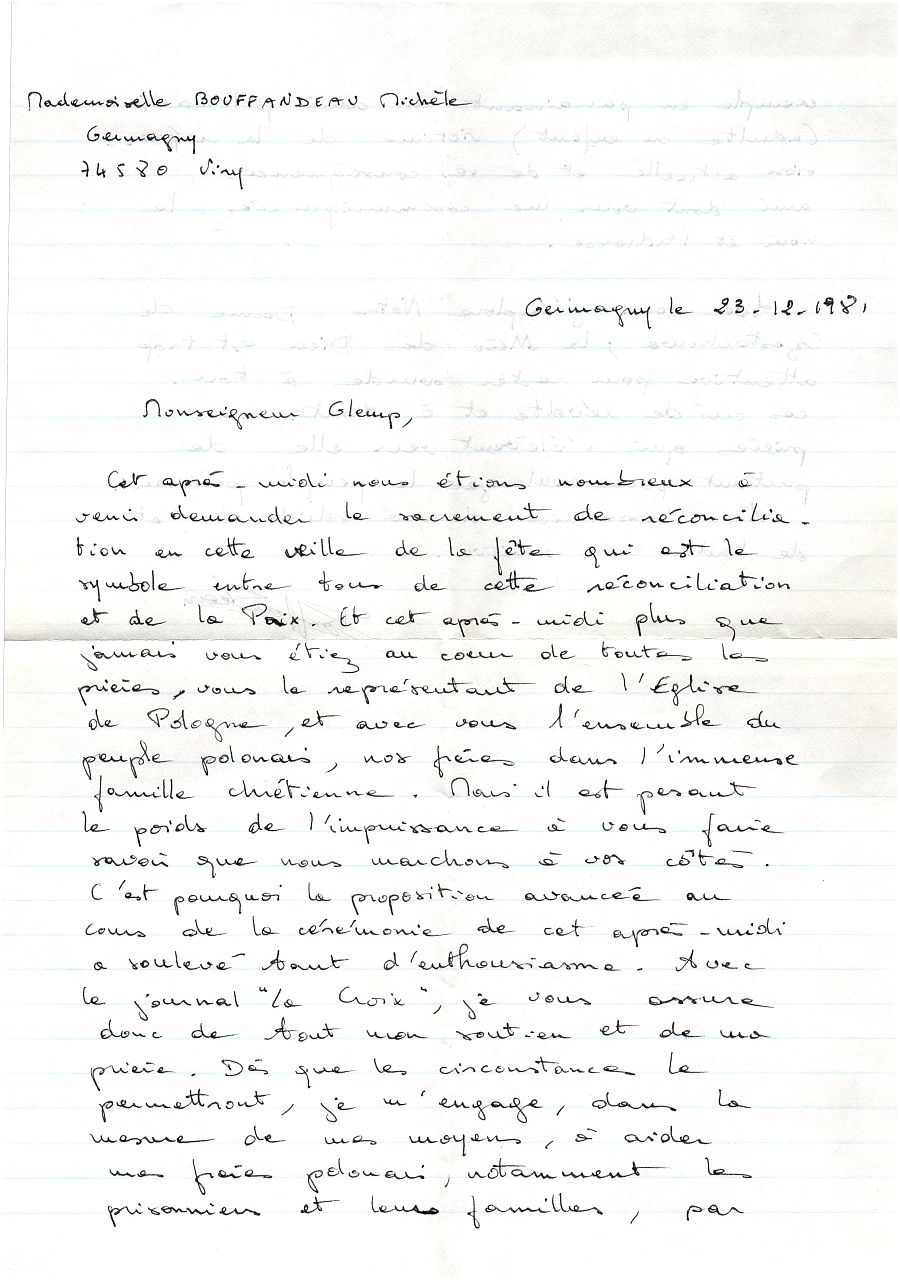 Mademoiselle BOUFFANDEAU Michèle
Germagny
74580 Viry
Germagny le 23-12-1981
Monseigneur Glemp,
Cet après-midi nous étions nombreux à
venir demander le sacrement de réconcilia-
tion en cette veille de la fête qui est le
symbole entre tous de cette réconciliation
et de la Paix. Et cet après-midi plus que
jamais vous étiez au coeur de toutes les
prières, vous le représentant de l'Eglise
de Pologne, et avec vous l'ensemble du
peuple polonais, nos frères dans l'immense
famille chrétienne. Mais il est pesant
le poids de l'impuissance à vous faire
savoir que nous marchons à vos côtés.
C'est pourquoi la proposition avancée au
cours de la cérémonie de cet après-midi
a soulevé tant d'enthousiasme. Avec
le journal "La Croix", je vous assure
donc de tout mon soutien et de ma
prière. Dès que les circonstances le
permettront, je m'engage, dans la
mesure de mes moyens, à aider
mes frères polonais, notamment les
prisonniers et leurs familles, par